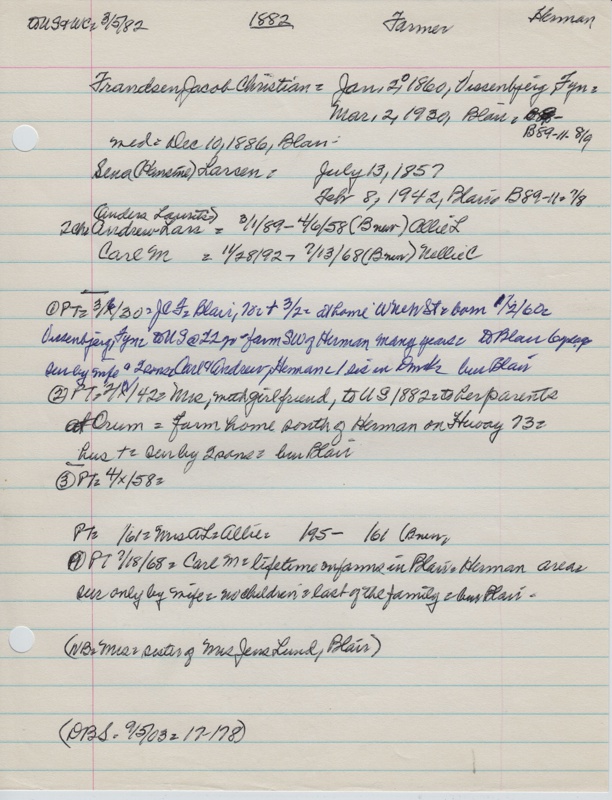 to US & WC = 3/5/82 1882 Farmer Herman
Frandsen, Jacob Christian = Jan, 20 1860, Vissenbjerg Fyn =
Mar, 2, 1930, Blair =
B89-11-8/9
med = Dec 10, 1886, Blair -
Sena (Hansine) Larsen = July 13, 1857
Febr 8, 1942, Blair = B89-11-7/8
(Anders Lauritz)
2 ch = Andrew Lars = 3/1/89 - 4/6/58 (B new) Ollie L
Carl M = 11/28/92 - 7/13/68 (B new) Nellie C
① PT = 3/ /30 = JCF = Blair, 70 + 3/2 = at home Wnen St = born /2/60 =
Vissenbjerg, Fyn = to US @ 22 yr = farm SW of Herman many years = to Blair
sur by wife & 2 sons = Carl & Andrew, Herman = 1 sis in Dmk = bur Blair
② PT = 2/ /42 = Mrs, with girlfriend, to US 1882 = to her parents
at Orum = farm home south of Herman on Hiway 73 =
hus + = sur by 2 sons = bur Blair
③ PT = 4/x/58 =
PT = /61 = Mrs A L = Allie = 195- 161 (B new,
④ PT 7/18/68 = Carl M = lifetime on farms in Blair = Herman area =
sur only by wife = no children = last of the family = bur Blair -
(NB = Mrs = sister of Mrs Jens Lund, Blair)
(DBS - 9/5/03 = 17-178)